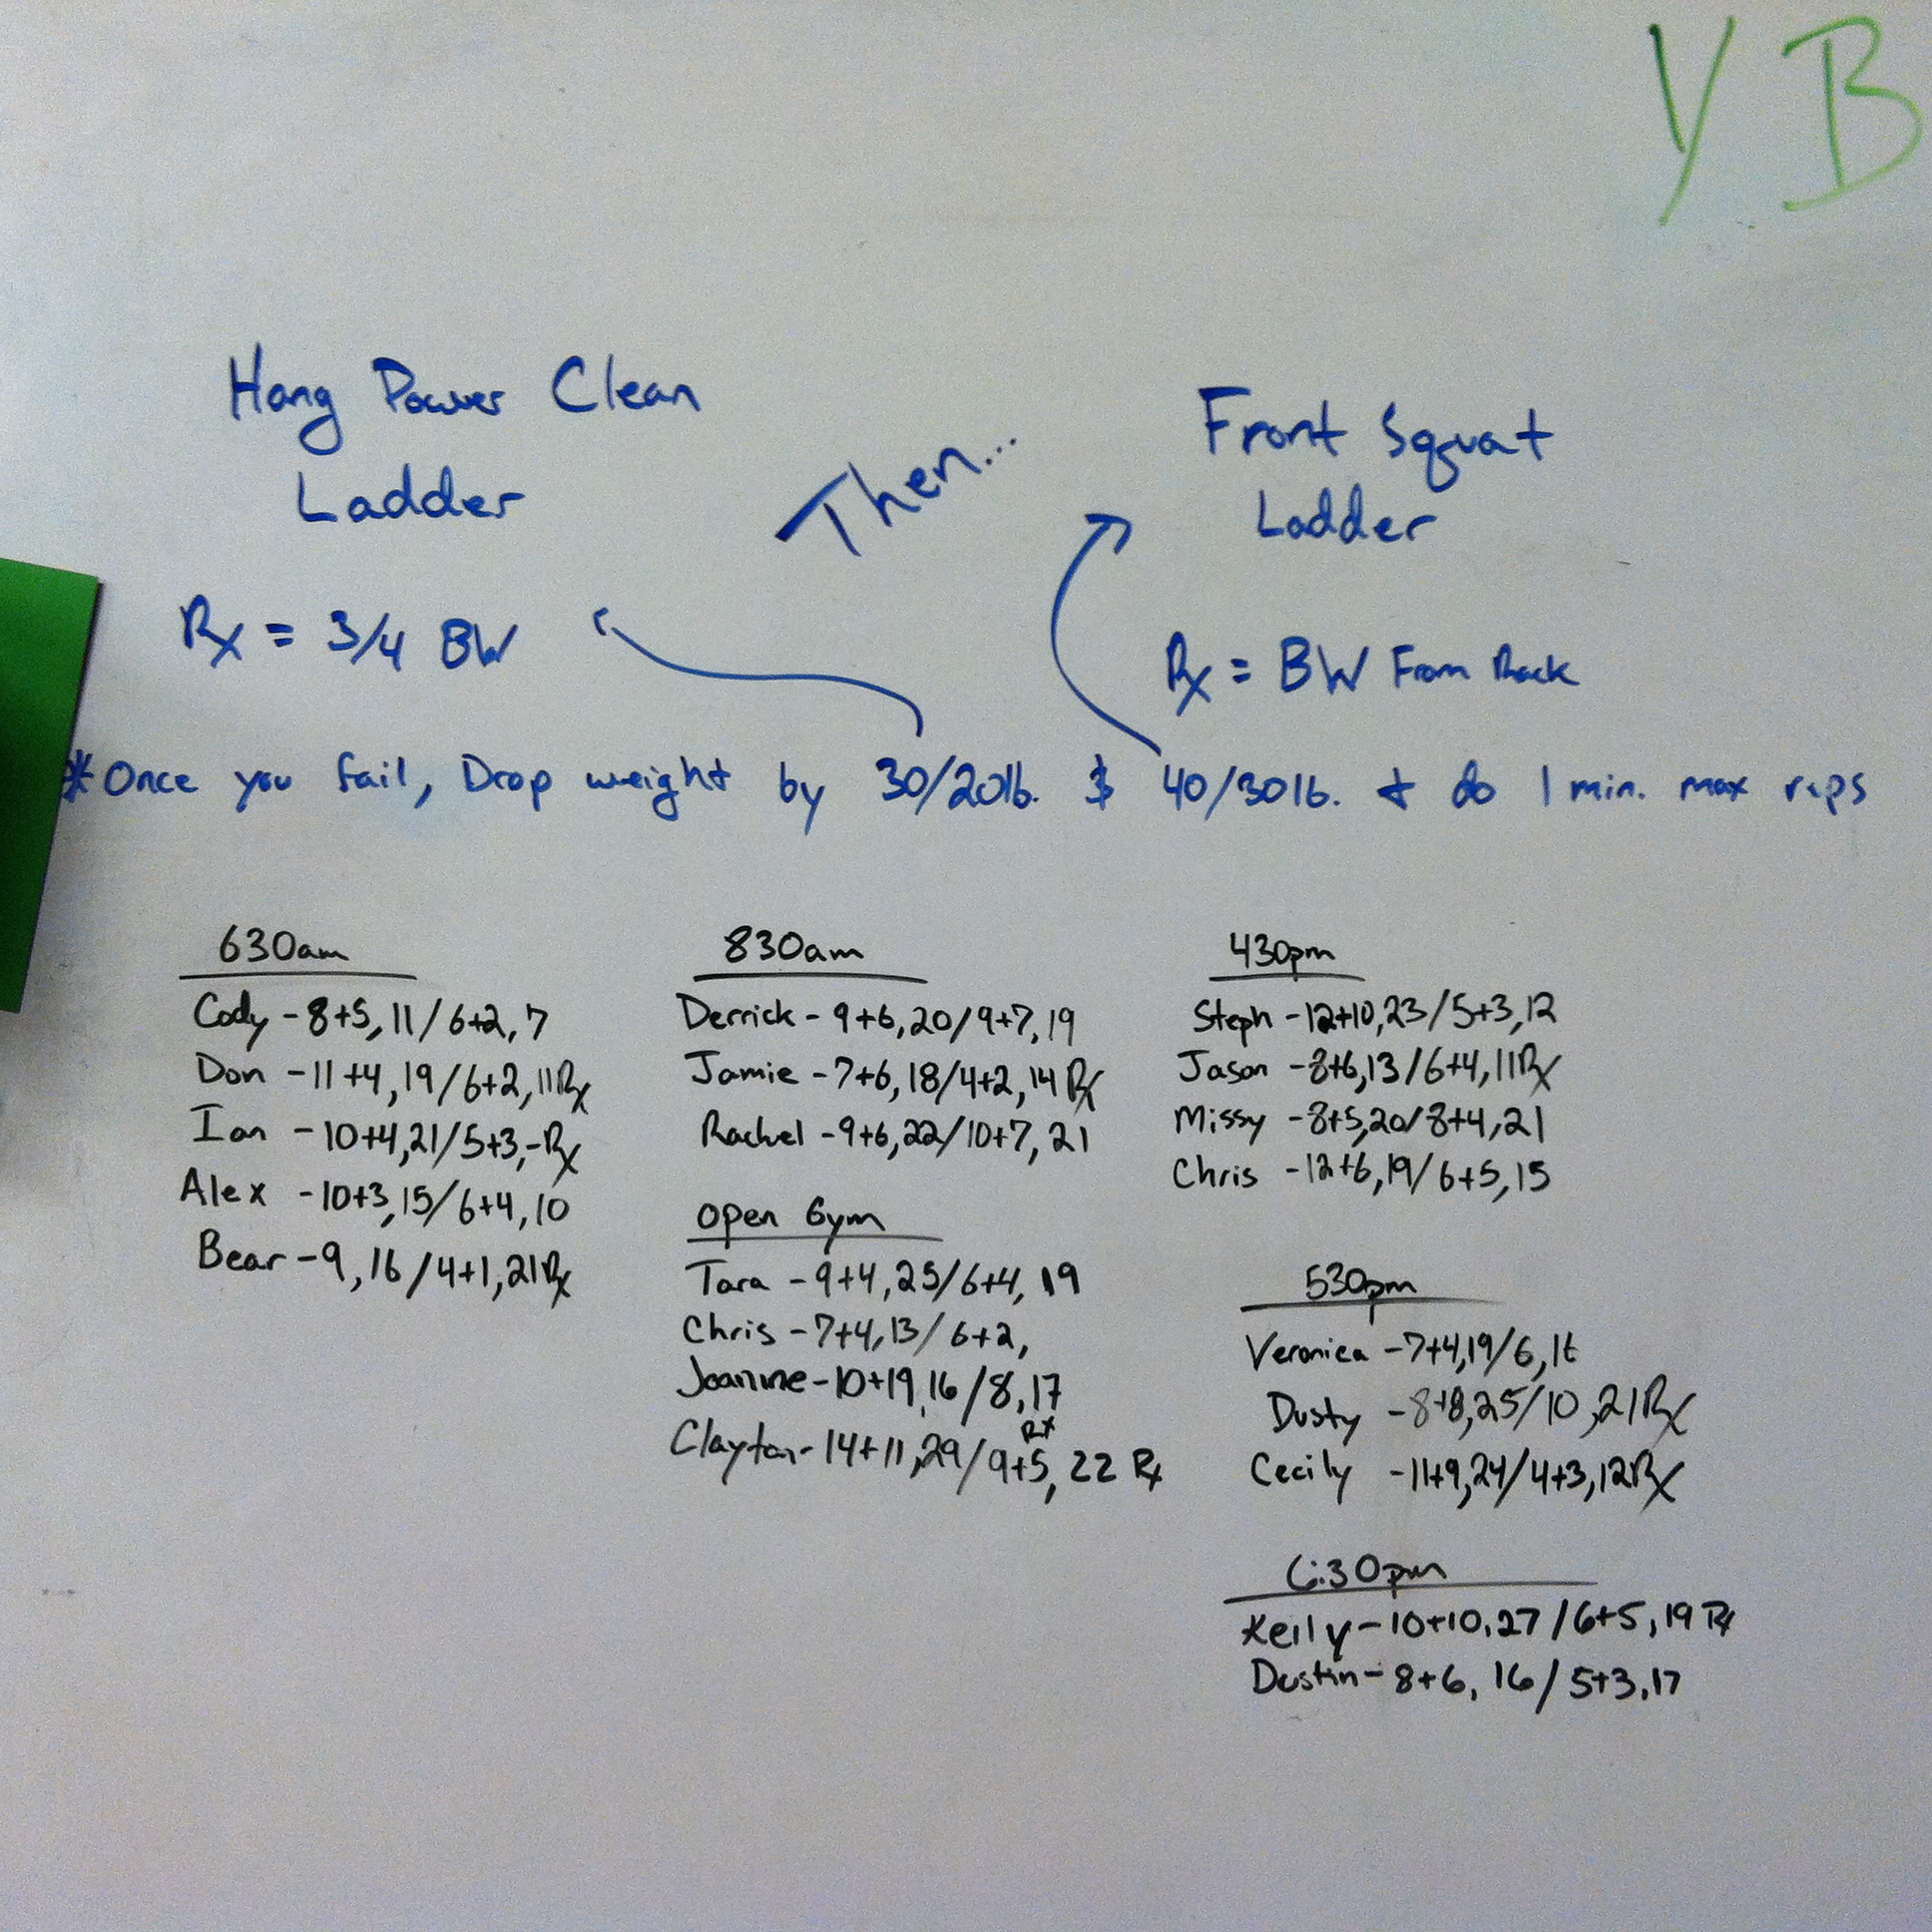 YB
Hang Power Clean
Ladder
Then...
Front Squat
Ladder
Rx = 3/4 BW
Rx = BW From Rack
*Once you fail, Drop weight by 30/20lb. $ 40/30lb. & do 1 min. max reps
630am
Cody - 8+5, 11 / 6+2, 7
Don - 11+4, 19 / 6+2, 11 Rx
Ian - 10+4, 21 / 5+3, - Rx
Alex - 10+3, 15 / 6+4, 10
Bear - 9, 16 / 4+1, 21 Rx
830am
Derrick - 9+6, 20 / 9+7, 19
Jamie - 7+6, 18 / 4+2, 14 Rx
Rachel - 9+6, 22 / 10+7, 21
Open Gym
Tara - 9+4, 25 / 6+4, 19
Chris - 7+4, 13 / 6+2,
Joanine - 10+19, 16 / 8, 17
Rx
Clayton - 14+11, 29 / 9+5, 22 Rx
430pm
Steph - 12+10, 23 / 5+3, 12
Jason - 8+6, 13 / 6+4, 11 Rx
Missy - 8+5, 20 / 8+4, 21
Chris - 12+6, 19 / 6+5, 15
530pm
Veronica - 7+4, 19 / 6,
Dusty - 8+8, 25 / 10, 21 Rx
Cecily - 11+9, 24 / 4+3, 12 Rx
6:30pm
Keily - 10+10, 27 / 6+5, 19 Rx
Dustin - 8+6, 16 / 5+3, 17